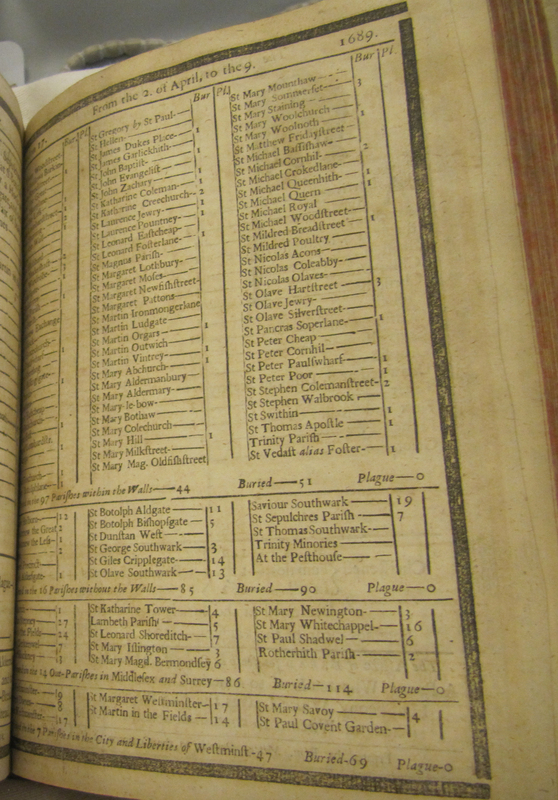 From the 2. of April, to the 9. 1689.
Bur Pl.
St Gregory by St Paul-
St Hellen
St James Dukes Place- 1
St James Garlickhith-
St John Baptist-
St John Evangelist
St John Zachary 1
St Katharine Coleman-
St Katharine Creechurch- 2
St Laurence Jewry- 1
St Laurence Pountney-
St Leonard Eastcheap- 1
St Leonard Fosterlane-
St Magnus Parish-
St Margaret Lothbury-
St Margaret Moses-
St Margaret Newfishstreet-
St Margaret Pattons
St Martin Ironmongerlane
St Martin Ludgate
St Martin Orgars 1
St Martin Outwich
St Martin Vintrey- 1
St Mary Abchurch- 1
St Mary Aldermanbury
St Mary Aldermary-
St Mary le-bow
St Mary Bothaw
St Mary Colechurch-
St Mary Hill 1
St Mary Milkstreet-
St Mary Mag. Oldfishstreet
Bur Pl.
St Mary Mounthaw
St Mary Sommerset- 3
St Mary Staining
St Mary Woolchurch
St Mary Woolnoth 1
St Matthew Fridaystreet
St Michael Bassishaw-
St Michael Cornhil- 2
St Michael Crokedlane-
St Michael Queenhith- 1
St Michael Quern 1
St Michael Royal
St Michael Woodstreet-
St Mildred Breadstreet 1
St Mildred Poultry
St Nicolas Acons
St Nicolas Coleabby-
St Nicolas Olaves-
St Olave Hartstreet 3
St Olave Jewry-
St Olave Silverstreet-
St Pancras Soperlane- 1
St Peter Cheap
St Peter Cornhil-
St Peter Paulswharf- 1
St Peter Poor 1
St Stephen Colemanstreet- 2
St Stephen Walbrook
St Swithin 1
St Thomas Apostle 1
Trinity Parish
St Vedast alias Foster- 1
97 Parishes within the Walls-44 Buried-51 Plague-0
St Botolph Aldgate 11
St Botolph Bishopsgate 5
St Dunstan West
St George Southwark 3
St Giles Cripplegate- 14
St Olave Southwark 13
Saviour Southwark 19
St Sepulchres Parish 7
St Thomas Southwark-
Trinity Minories
At the Pesthouse-
16 Parishes without the Walls-85 Buried-90 Plague-0
St Katharine Tower- 4
Lambeth Parish 5
St Leonard Shoreditch- 7
St Mary Islington 3
St Mary Magd. Bermondsey 6
St Mary Newington- 3
St Mary Whitechappel- 16
St Paul Shadwel- 6
Rotherhith Parish- 2
14 Out-Parishes in Middlesex and Surrey-86 Buried-114 Plague-0
St Margaret Westminster- 17
St Martin in the Fields- 14
St Mary Savoy 4
St Paul Covent Garden-
7 Parishes in the City and Liberties of Westminst-47 Buried-69 Plague-0